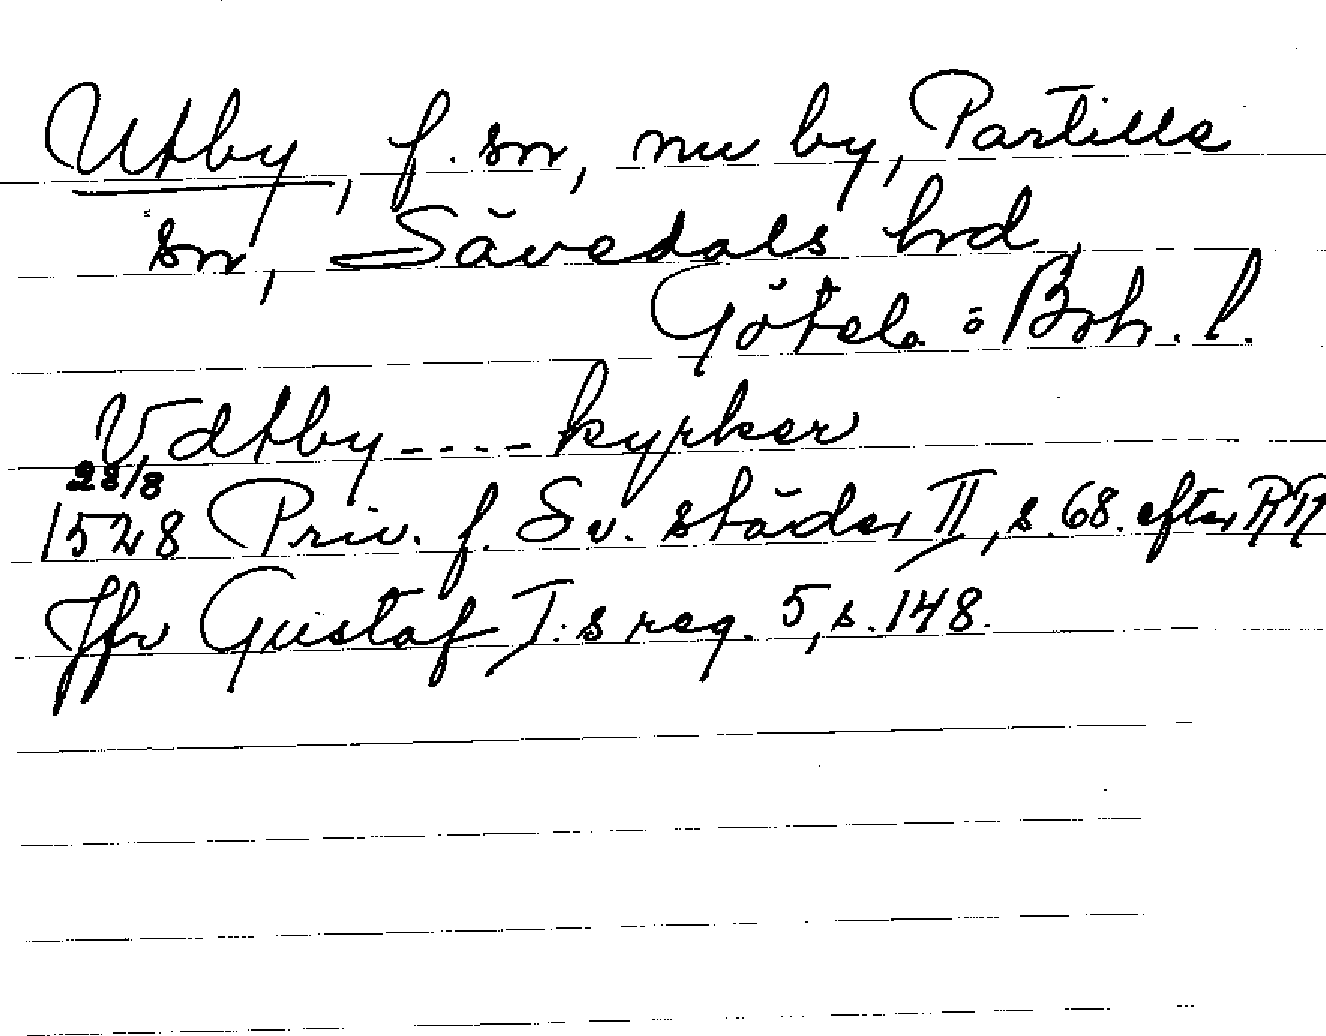 Utby, f. sn, nu by, Partille
sn, Sävedals hrd,
Göteb. o Boh. l.
Vdtby ---- kyrker
28/8
1528 Priv. f. Sv. städer II, s. 68. efter RR
Jfr Gustaf I:s reg. 5, s. 148.